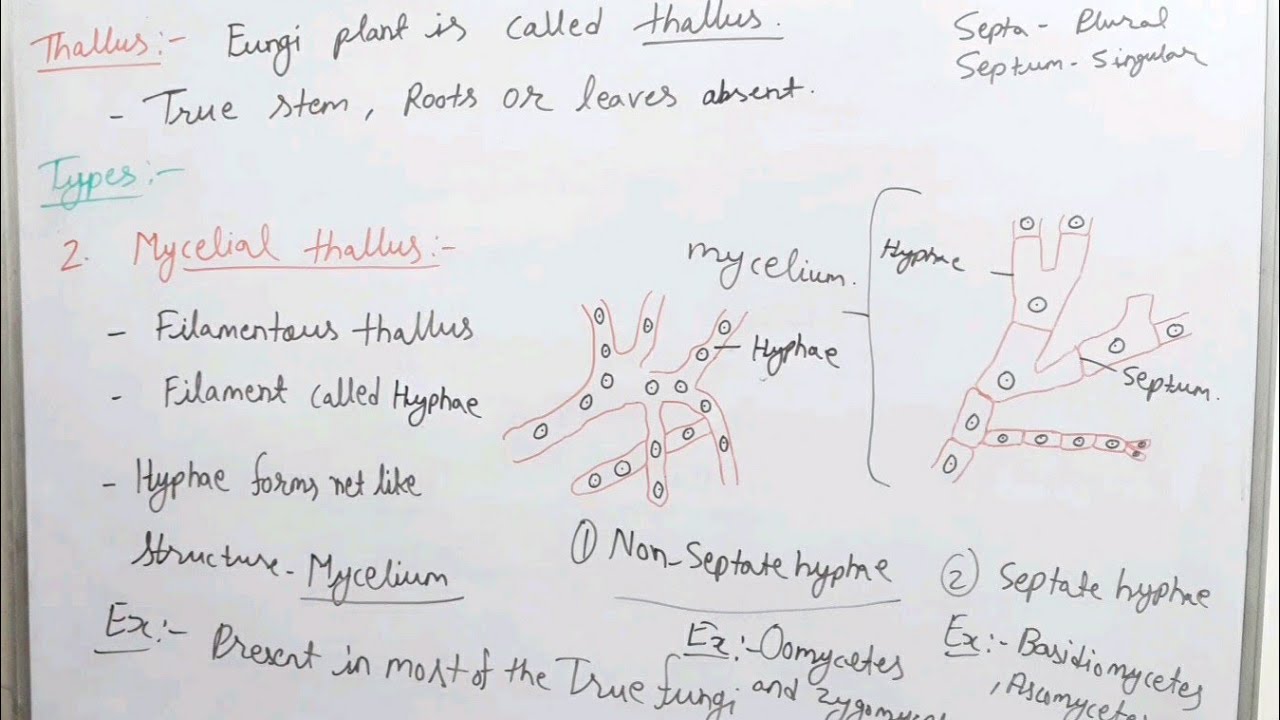 Thallus:- Fungi plant is called thallus.
- True stem, Roots or leaves absent.
Septa - Plural
Septum - Singular
Types:-
2. Mycelial thallus:-
- Filamentous thallus
- Filament called Hyphae
- Hyphae forms net like
structure - Mycelium
Ex:- Present in most of the True fungi
mycelium.
Hyphae
① Non-Septate hyphae
Ex:- Oomycetes
and
Hyphae
Septum.
② Septate hyphae
Ex:- Basidiomycetes
, Ascomycetes